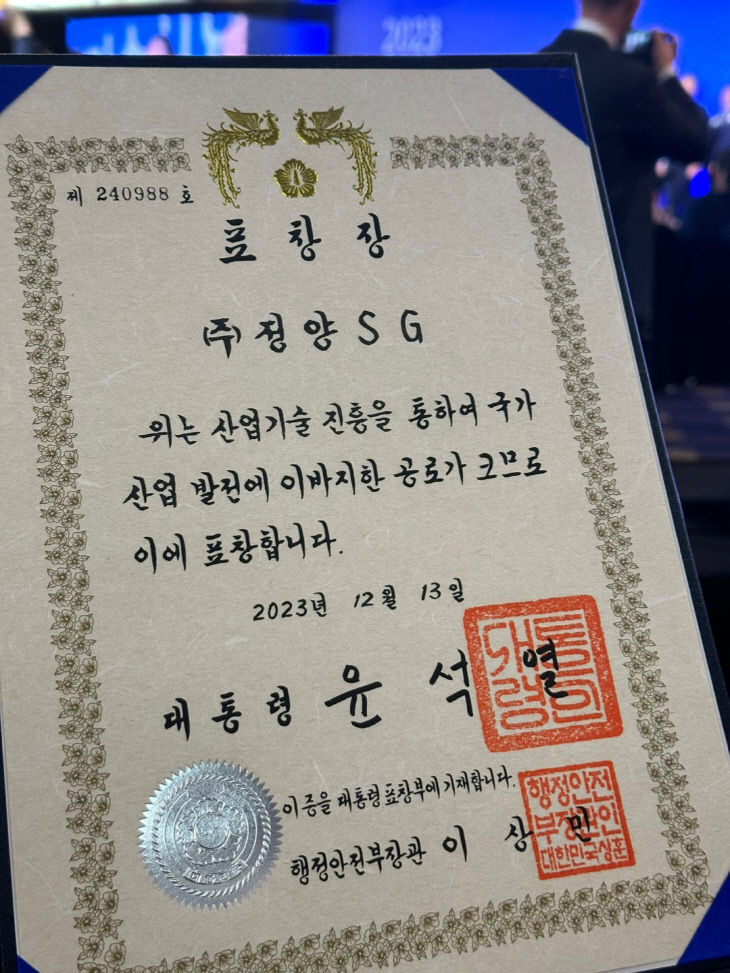 2023
제 240988 호
표 창 장
(주) 정 양 S G
위는 산업기술 진흥을 통하여 국가
산업 발전에 이바지한 공로가 크므로
이에 표창합니다.
2023년 12월 13일
대 통 령 윤 석 열
대통령의인
이 증을 대통령표창부에 기재합니다.
행정안전부장관 이 상 민
행정안전
부장관인
대한민국상훈